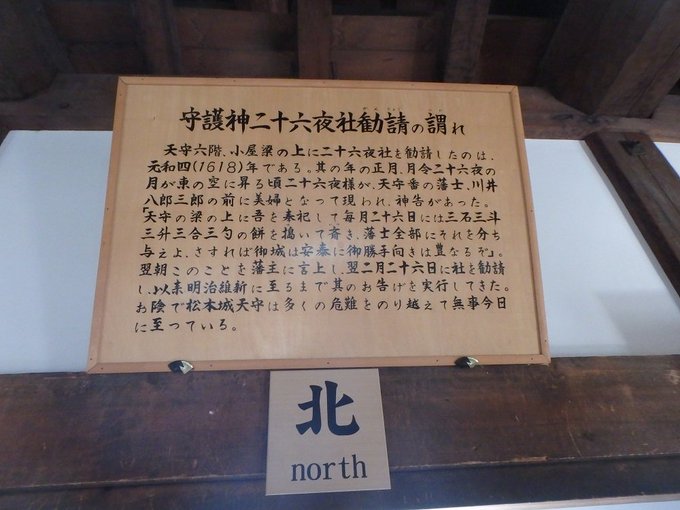 守護神二十六夜社勧請の謂れ
天守六階、小屋梁の上に二十六夜社を勧請したのは、
元和四(1618)年である。其の年の正月、月令二十六夜の
月が東の空に昇る頃二十六夜様が、天守番の藩士、川井
八郎三郎の前に美婦となって現われ、神告があった。
「天守の梁の上に吾を奉祀して毎月二十六日には三石三斗
三升三合三勺の餅を搗いて斎き、藩士全部にそれを分ち
与えよ、さすれば御城は安泰に御勝手向きは豊なるぞ」。
翌朝このことを藩主に言上し、翌二月二十六日に社を勧請
し、以来明治維新に至るまで其のお告げを実行してきた。
お陰で松本城天守は多くの危難をのり越えて無事今日
に至っている。
北
north